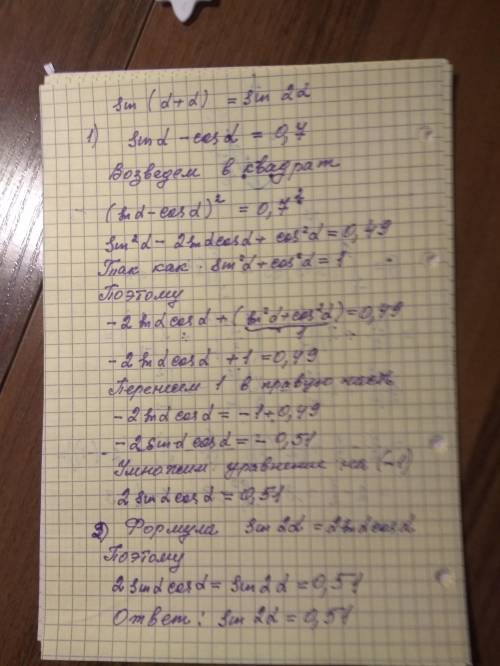 sin (α+α) = sin 2α
1) sinα - cosα = 0,7
Возведем в квадрат
(sinα - cosα)² = 0,7²
sin²α - 2sinαcosα + cos²α = 0,49
Так как sin²α + cos²α = 1
Поэтому
-2sinαcosα + (sin²α + cos²α) = 0,49
1
-2sinαcosα + 1 = 0,49
Перенесем 1 в правую часть
-2sinαcosα = -1+0,49
-2sinαcosα = -0,51
Умножим уравнение на (-1)
2sinαcosα = 0,51
2) Формула sin2α = 2sinαcosα
Поэтому
2sinαcosα = sin2α = 0,51
Ответ: sin2α = 0,51